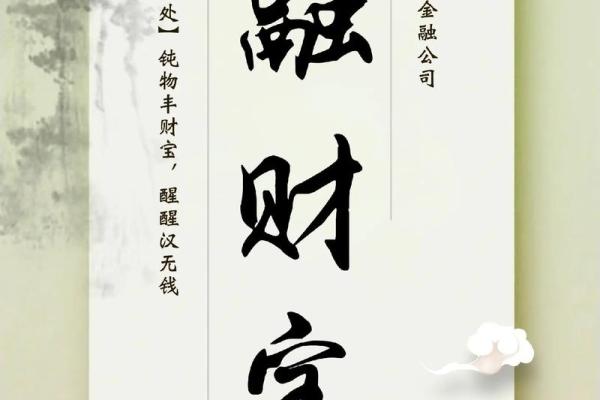 金融公司
融财宝
处】钝物丰财宝，醒醒汉无钱